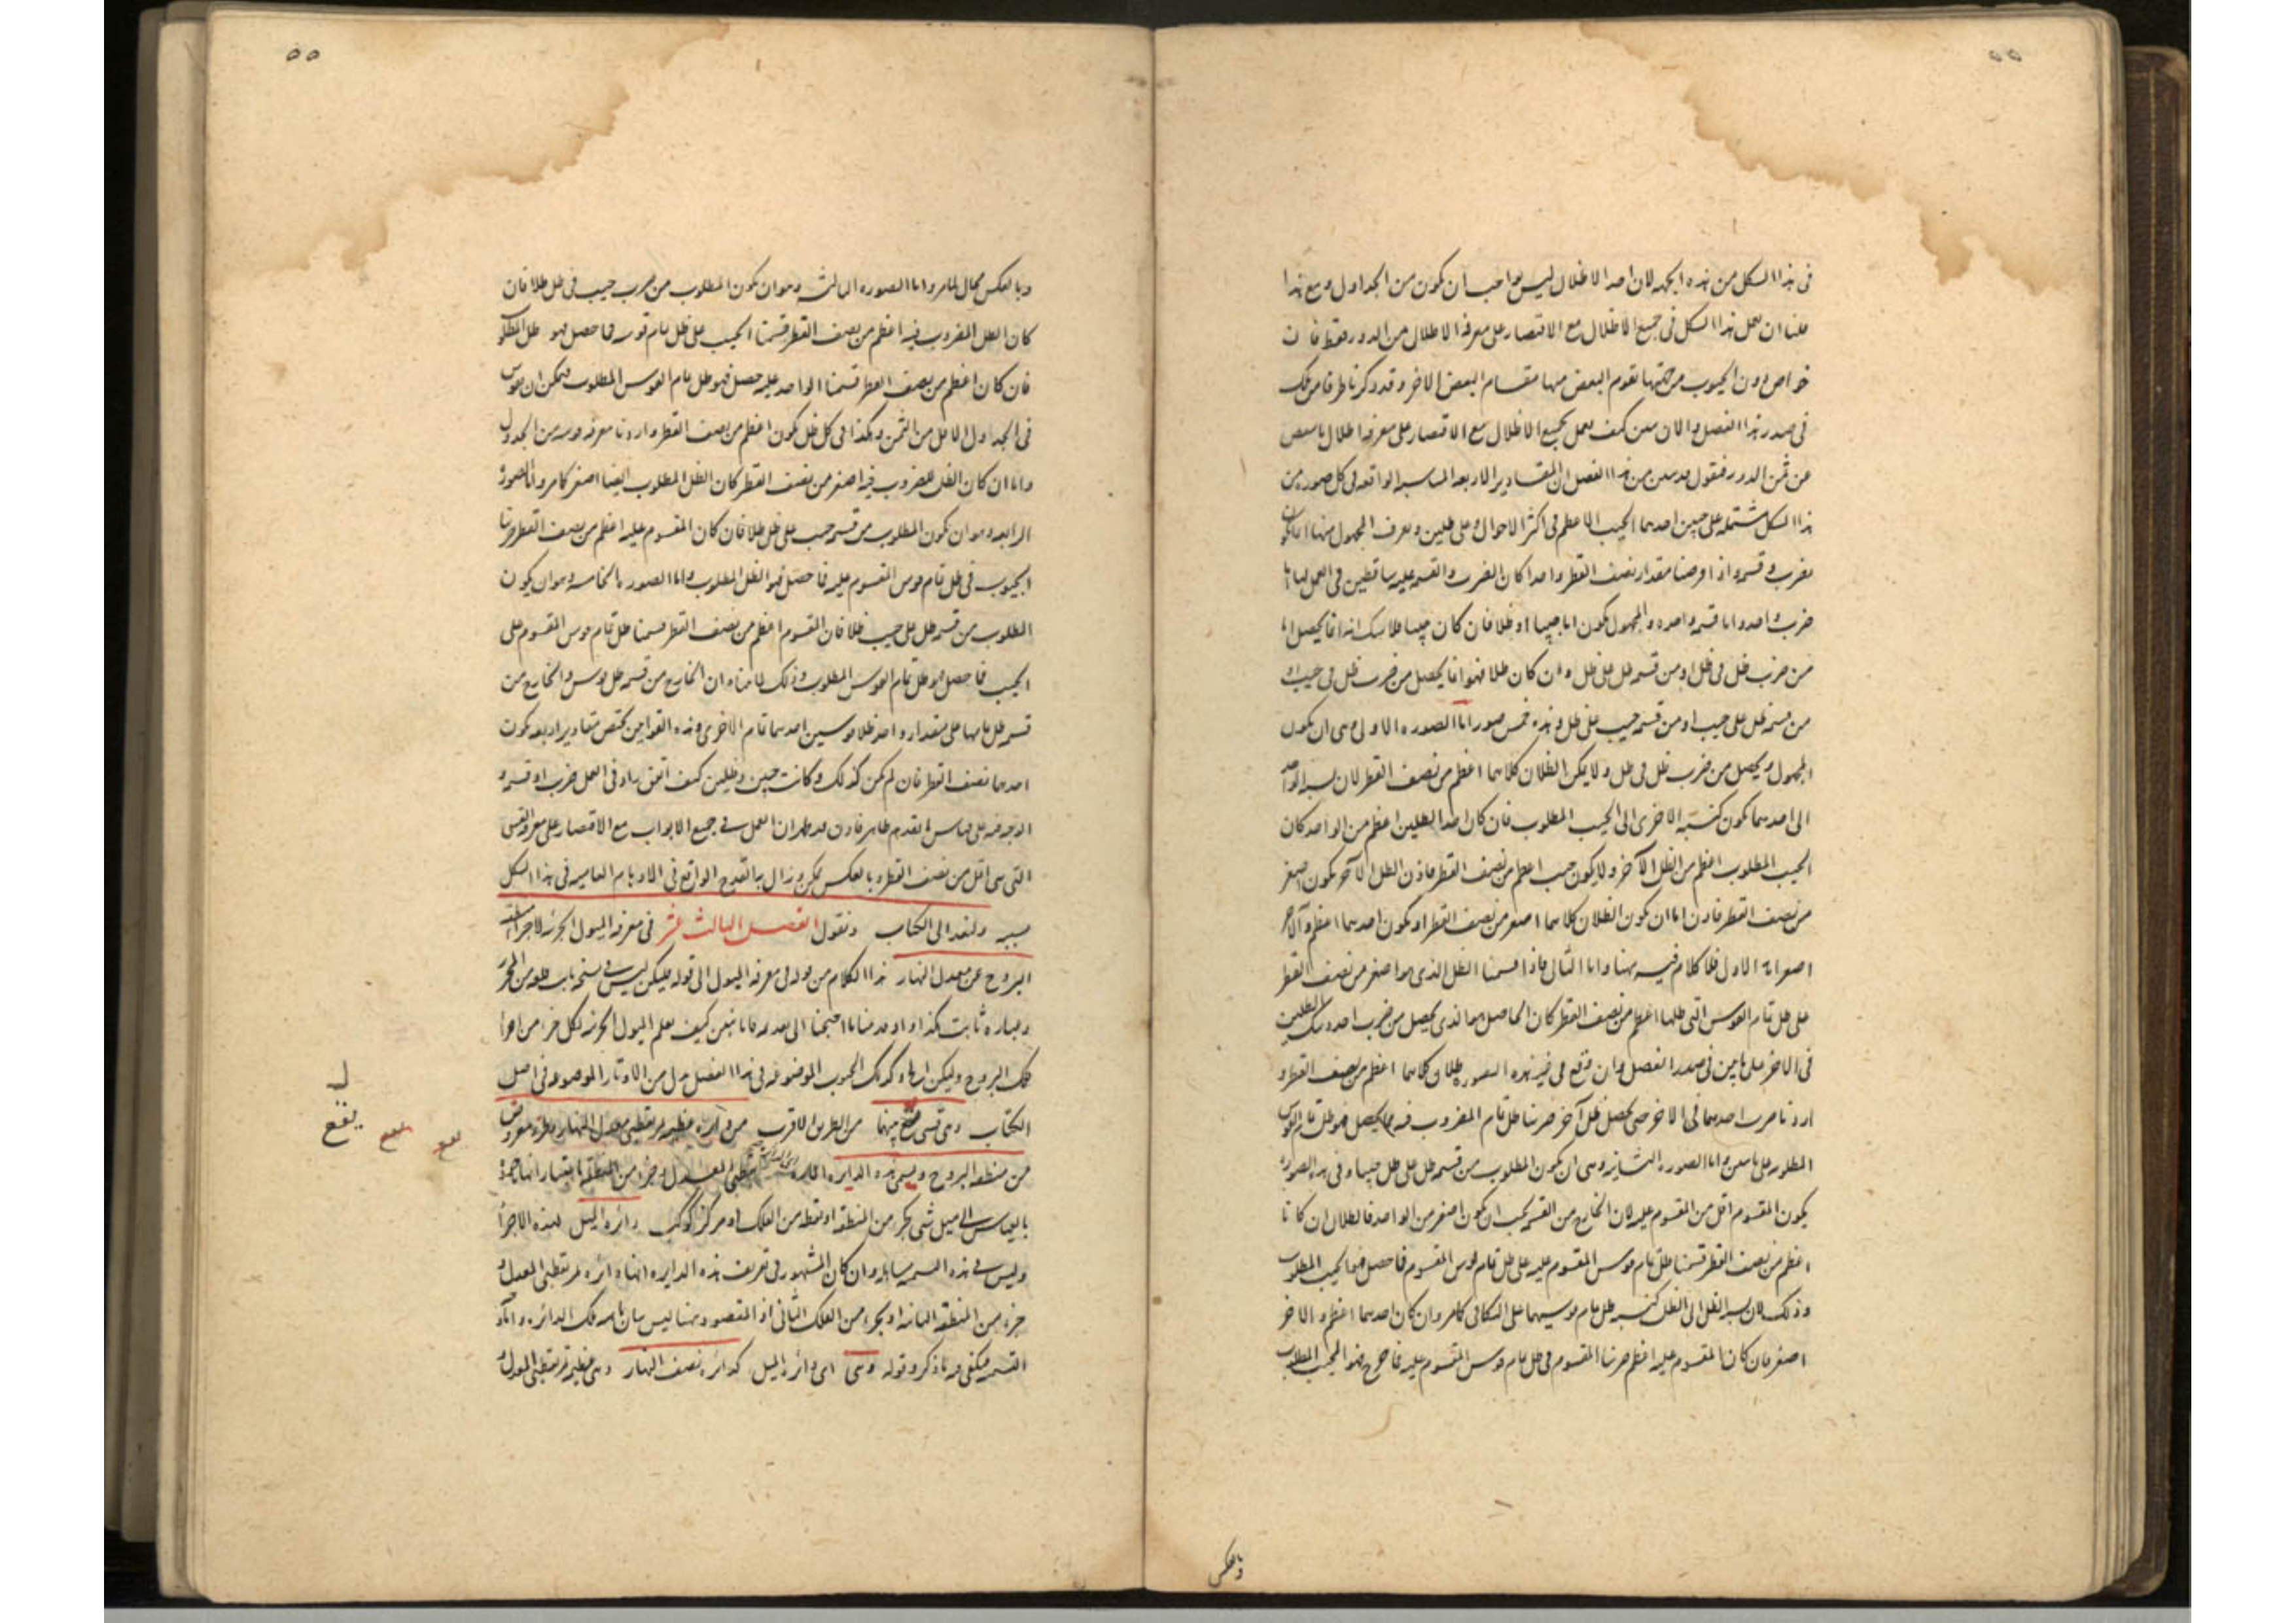 ٥٥
فى هذا الشكل من هذه الجهة لان احد الاظلال ليس بواجب ان يكون من الجداول ومع هذا
علنا ان نعمل هذا الشكل فى جميع الاظلال مع الاقتصار على معرفة الاظلال من الدور فقط فان
خواص دون الجيوب من جهتها تقوم البعض منها مقام البعض الاخر وقد ذكرنا طرفا من ذلك
فى صدر هذا الفصل والان نبين كيف نعمل بجميع الاظلال مع الاقتصار على معرفة اظلال ما ينقص
عن ثمن الدور فنقول قد تبين من هذا الفصل ان المقادير الاربعة المتناسبة الواقعة فى كل صورة من
هذا الشكل مشتملة على جيبين احدهما الجيب الاعظم فى اكثر الاحوال وعلى ظلين ويعرف المجهول منها
بضرب وقسمة واذا فرضنا مقدار نصف القطر واحدا كان الضرب والقسمة عليه ساقطين فى العمل
ضرب واحد واما قسمة واحدة والمجهول يكون اما جيبا او ظلا فان كان جيبا فلا شك انه انما يحصل اما
من ضرب ظل فى ظل او من قسمة ظل على ظل وان كان ظلا فهو انما يحصل من ضرب ظل فى جيب او
من قسمة ظل على جيب او من قسمة جيب على ظل وهذه خمس صور اما الصورة الاولى وهى ان يكون
المجهول يحصل من ضرب ظل فى ظل ولا يكن الظلان كلاهما اعظم من نصف القطر لان نسبة الواحد
الى احدهما تكون كنسبة الاخرى الى الجيب المطلوب فان كان احد الظلين اعظم من الواحد كان
الجيب المطلوب اعظم من الظل الآخر ولا يكون جيب اعظم من نصف القطر فاذن الظل الآخر يكون اصغر
من نصف القطر فاذن اما ان يكون الظلان كلاهما اصغر من نصف القطر او يكون احدهما اعظم والآخر
اصغر اما الاول فلا كلام فيه ههنا واما الثانى فاذا قسمنا الظل الذى هو اصغر من نصف القطر
على ظل تمام القوس التى ظلها اعظم من نصف القطر كان الحاصل هو الذى يحصل من ضرب احد ذينك الظلين
فى الاخر على ما بين فى صدر الفصل وان وقع فى غير هذه الصورة ظلان كلاهما اعظم من نصف القطر و
اردنا ضرب احدهما فى الاخر حتى يحصل ظل آخر ضربنا ظل تمام المضروب فيه فما يحصل فهو ظل تمام القوس
المطلوبة على ما تبين واما الصورة الثانية وهى ان يكون المطلوب من قسمة ظل على ظل جيبا وفى هذه الصورة
يكون المقسوم اقل من المقسوم عليه لان الخارج من القسمة يجب ان يكون اصغر من الواحد فالظلان ان كانا
اعظم من نصف القطر قسمنا ظل تمام قوس المقسوم عليه على ظل تمام قوس المقسوم فما حصل فهو الجيب المطلوب
وذلك لان نسبة الظل الى الظل كنسبة ظل تمام قوسيهما على التكافى كما مر وان كان احدهما اعظم والاخر
اصغر فان كان المقسوم عليه اعظم ضربنا المقسوم فى ظل تمام قوس المقسوم عليه فما خرج فهو الجيب المطلوب
وبالعكس
٥٥
وبالعكس محال لما مر واما الصورة الثالثة وهو ان يكون المطلوب من ضرب جيب فى ظل ظلا فان
كان الظل المضروب فيه اعظم من نصف القطر قسمنا الجيب على ظل تمام قوسه فما حصل فهو ظل المطلوب
فان كان اعظم من نصف القطر قسمنا الواحد عليه حصل فهو ظل تمام القوس المطلوب فيمكن ان يقوس
فى الجداول الاقل من الثمن وهكذا فى كل ظل يكون اعظم من نصف القطر واردنا معرفة قوسه من الجدول
واما ان كان الظل المضروب فيه اصغر من نصف القطر كان الظل المطلوب ايضا اصغر كما مر واما الصورة
الرابعة وهو ان يكون المطلوب من قسمة جيب على ظل ظلا فان كان المقسوم عليه اعظم من نصف القطر ضربنا
الجيوب فى ظل تمام قوس المقسوم عليه فما حصل فهو الظل المطلوب واما الصورة الخامسة وهو ان يكون
المطلوب من قسمة ظل على جيب ظلا فان المقسوم اعظم من نصف القطر قسمنا ظل تمام قوس المقسوم على
الجيب فما حصل هو ظل تمام القوس المطلوب وذلك لما بيناه ان الخارج من قسمة ظل قوس والخارج من
قسمة ظل تمامها على مقدار واحد ظلا قوسين احدهما تمام الاخرى وهذه القوانين تختص مقادير اربعة يكون
احدها نصف القطر فان لم يكن كذلك وكانت جيبين وظلين كيف اتفق يزاد فى العمل ضرب او قسمة و
الوجه فيه على قياس ما تقدم ظاهر فاذن قد ظهر ان العمل فى جميع الابواب مع الاقتصار على معرفة القسى
التى هى اقل من نصف القطر وبالعكس ممكن وزال به القدح الواقع فى الاوهام العامية فى هذا الشكل
ولنعد الى الكتاب ونقول الفصل الثالث عشر فى معرفة الميول الجزئية لاجزاء
البروج عن معدل النهار هذا الكلام من قوله فى معرفة الميول الى قوله فليكن ليس فى نسخة ثابت
وعبارة ثابت هكذا واذ قدمنا ما احتجنا الى تقديمه فانا نبين كيف نعلم الميول الجزئية لكل جزء من اجزاء
فلك البروج وليكن اب ج د كذلك الجيوب الموضوعة فى هذا الفصل بدل من الاوتار الموضوعة فى اصل
الكتاب وهى قسى تقع بينهما من الطرف الاقرب من دائرة عظيمة تمر بقطبى معدل النهار
من منطقة البروج ويسمى هذه الدايرة المارة بقطبى المعدل وجزء من المنطقة باعتبار انها
بالقياس الى ميل شىء من المنطقة او نقطة من الفلك او مركز كوكب دائرة الميل لهذه الاجزاء
وليس فى هذه التسمية وان كان المشهور فى تعريف هذه الدايرة انها دائرة تمر بقطبى المعدل و
جزء من المنطقة او بجزء من الفلك الثانى اذ المقصود ههنا ليس بيان تلك الدائرة واما
التسمية فيكفى فيه ما ذكر وقوله وهى اى دائرة الميل كدائرة نصف النهار وهى عظيمة تمر بقطبى المعدل و
يقع